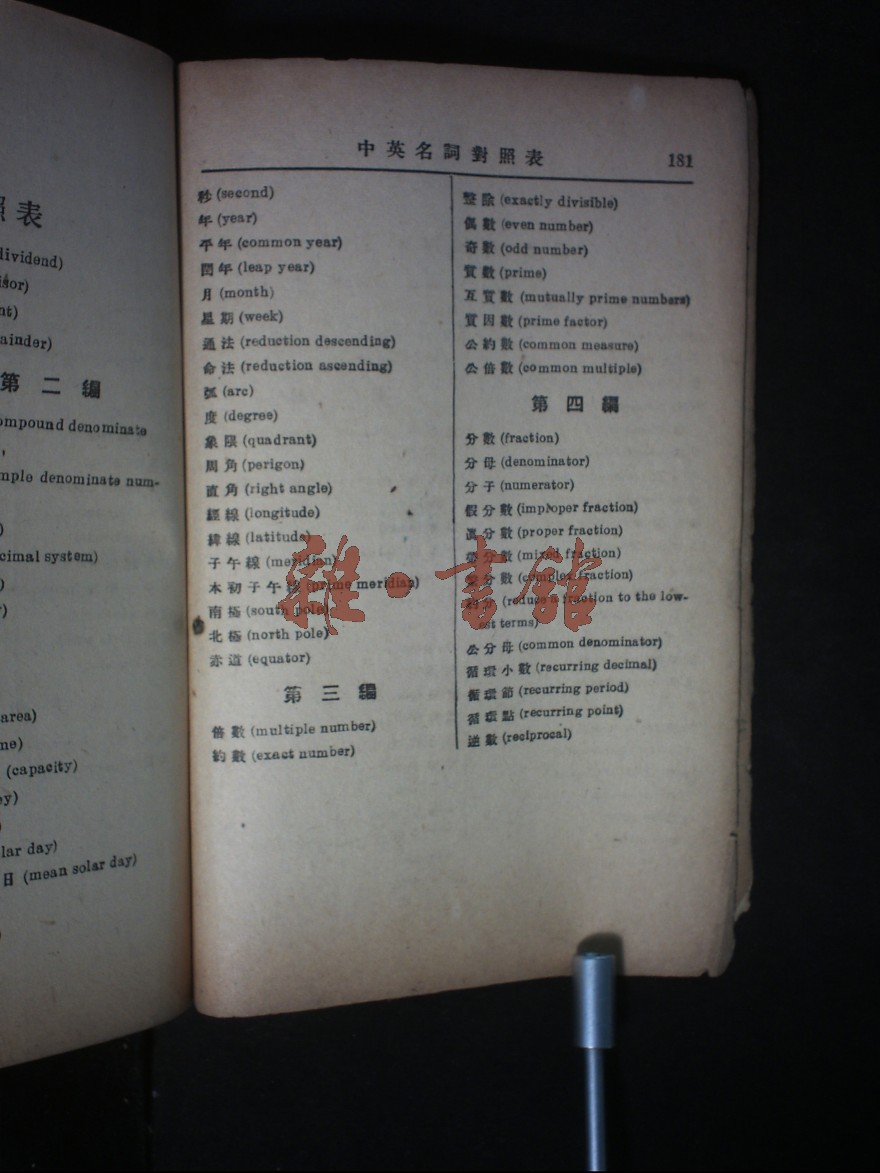 照表
dividend)
isor)
nt)
ainder)
第二編
ompound denominate
mple denominate num-
)
cimal system)
)
)
area)
me)
(capacity)
ey)
)
lar day)
日 (mean solar day)
)
中英名詞對照表
181
秒 (second)
年 (year)
平年 (common year)
閏年 (leap year)
月 (month)
星期 (week)
通法 (reduction descending)
命法 (reduction ascending)
弧 (arc)
度 (degree)
象限 (quadrant)
周角 (perigon)
直角 (right angle)
經線 (longitude)
緯線 (latitude)
子午線 (meridian)
本初子午線 (prime meridian)
南極 (south pole)
北極 (north pole)
赤道 (equator)
第三編
倍數 (multiple number)
約數 (exact number)
整除 (exactly divisible)
偶數 (even number)
奇數 (odd number)
質數 (prime)
互質數 (mutually prime numbers)
質因數 (prime factor)
公約數 (common measure)
公倍數 (common multiple)
第四編
分數 (fraction)
分母 (denominator)
分子 (numerator)
假分數 (improper fraction)
眞分數 (proper fraction)
帶分數 (mixed fraction)
繁分數 (complex fraction)
約分 (reduce a fraction to the low-
est terms)
公分母 (common denominator)
循環小數 (recurring decimal)
循環節 (recurring period)
循環點 (recurring point)
逆數 (reciprocal)
雜·書館